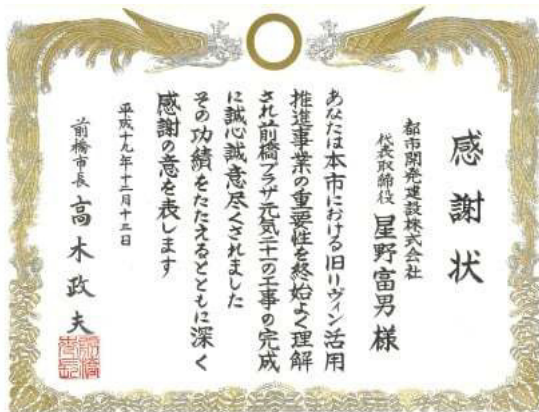 感謝状
都市開発建設株式会社
代表取締役 星野富男様
あなたは本市における旧リヴィン活用
推進事業の重要性を終始よく理解
され前橋プラザ元気二十一の工事の完成
に誠心誠意尽くされました
その功績をたたえるとともに深く
感謝の意を表します
平成十九年十二月十二日
前橋市長 高木政夫